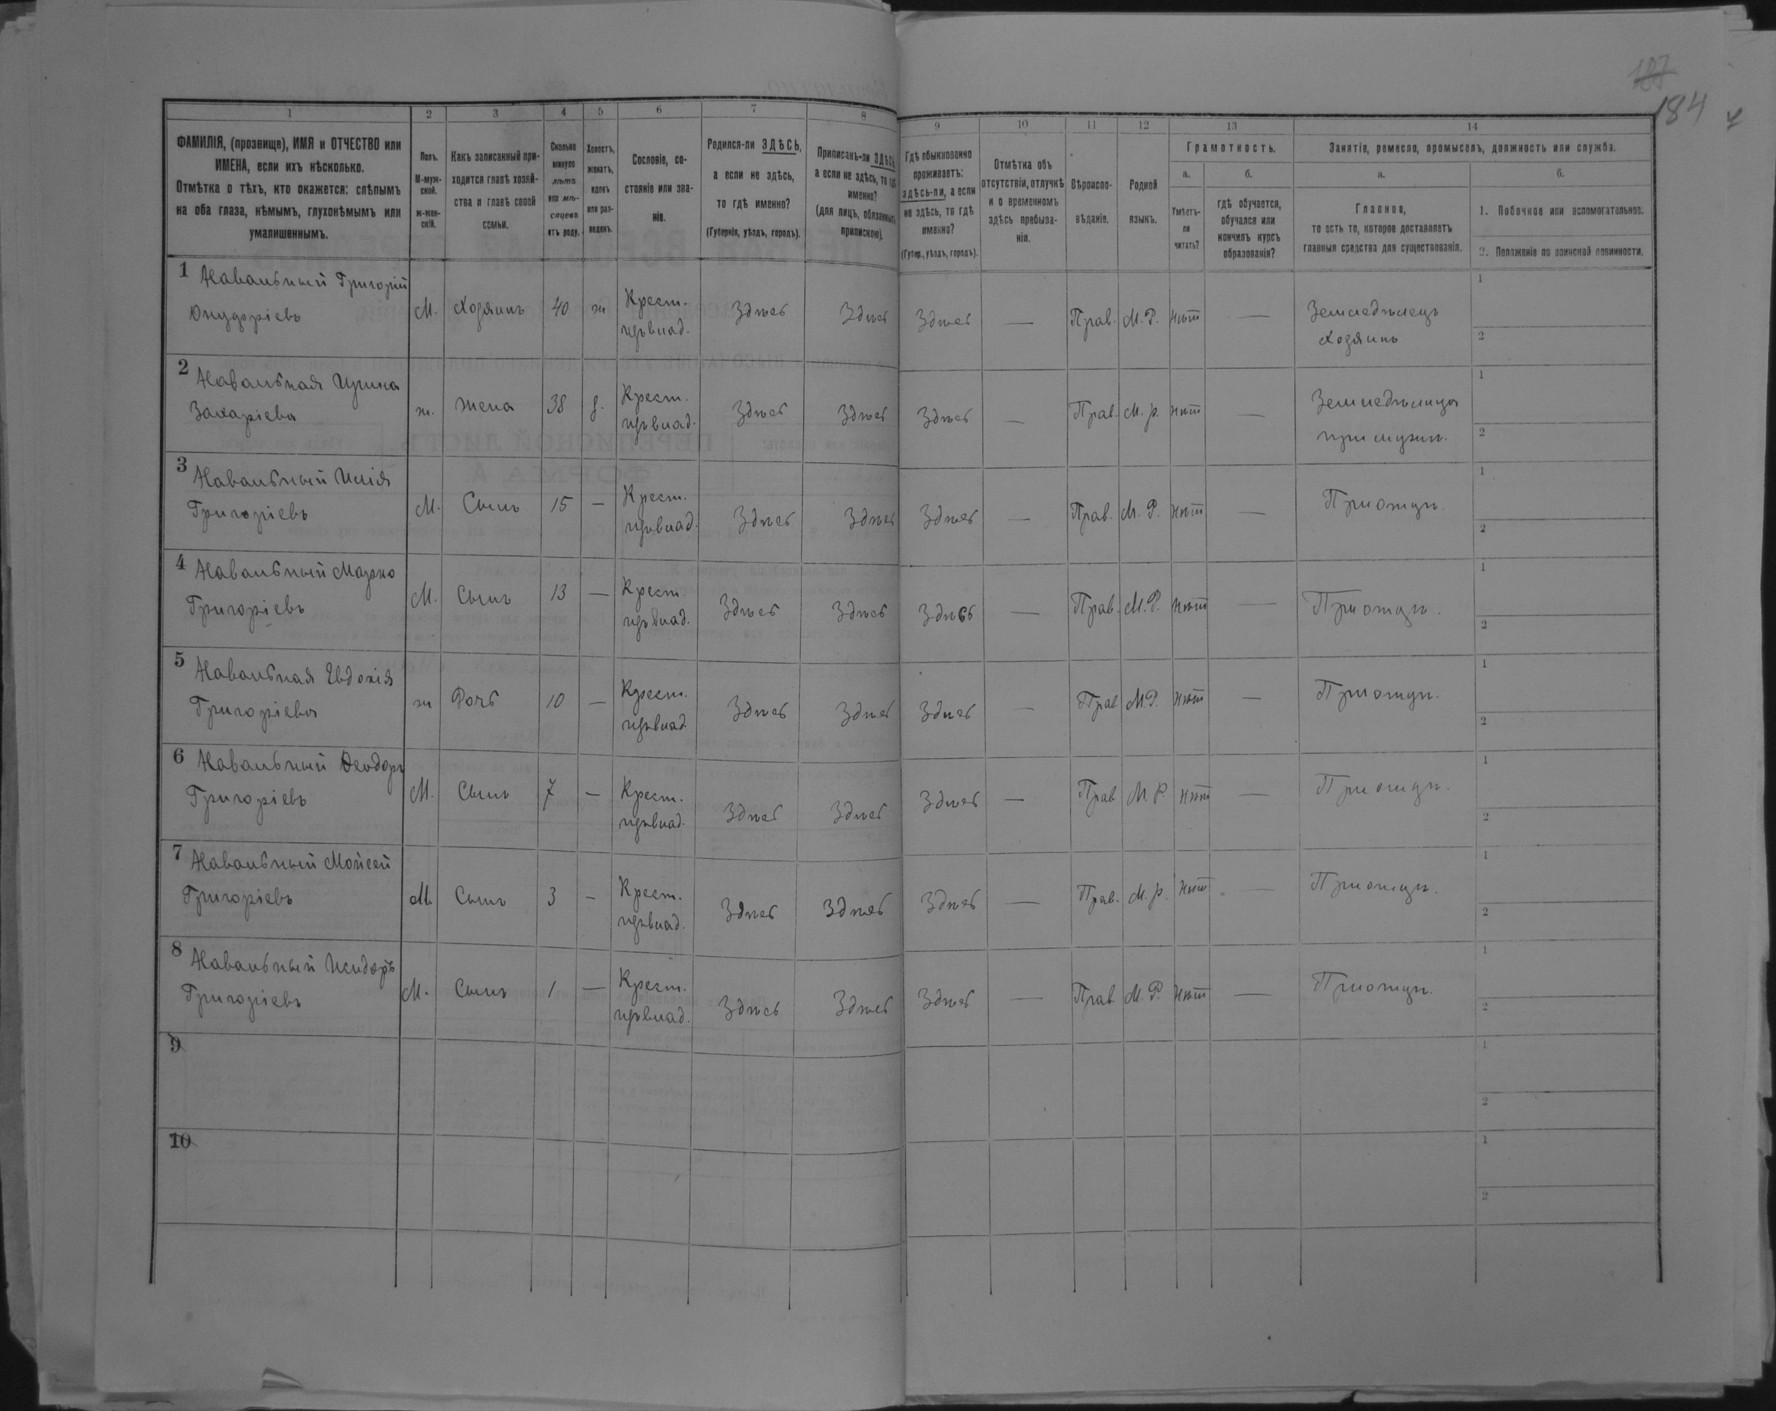 187
184
1 2 3 4 5 6 7 8 9 10 11 12 13 14
ФАМИЛІЯ, (прозвище), ИМЯ и ОТЧЕСТВО или
ИМЕНА, если ихъ нѣсколько.
Отмѣтка о тѣхъ, кто окажется: слѣпымъ
на оба глаза, нѣмымъ, глухонѣмымъ или
умалишеннымъ.
Полъ.
М-муж-
ской.
ж-жен-
скій.
Какъ записанный при-
ходится главѣ хозяй-
ства и главѣ своей
семьи.
Сколько
минуло
лѣтъ
или мѣ-
сяцевъ
отъ роду.
Холостъ,
женатъ,
вдовъ
или раз-
веденъ.
Сословіе, со-
стояніе или зва-
ніе.
Родился-ли ЗДѢСЬ,
а если не здѣсь,
то гдѣ именно?
(Губернія, уѣздъ, городъ).
Приписанъ-ли ЗДѢСЬ,
а если не здѣсь, то гдѣ
именно?
(для лицъ, обязанныхъ
припискою).
Гдѣ обыкновенно
проживаетъ:
здѣсь-ли, а если
не здѣсь, то гдѣ
именно?
(Губер., уѣздъ, городъ).
Отмѣтка объ
отсутствіи, отлучкѣ
и о временномъ
здѣсь пребыва-
ніи.
Вѣроиспо-
вѣданіе.
Родной
языкъ.
Грамотность.
а.
Умѣетъ-
ли
читать?
б.
гдѣ обучается,
обучался или
кончилъ курсъ
образованія?
Занятіе, ремесло, промыселъ, должность или служба.
а.
Главное,
то есть то, которое доставляетъ
главныя средства для существованія.
б.
1. Побочное или вспомогательное.
2. Положеніе по воинской повинности.
1 Навальный Григорій
М. Хозяинъ 40 ж Крест. Здѣсь Здѣсь Здѣсь — Прав. М. Р. нѣт — Земледѣлецъ 1
хозяинъ 2
2 Навальная
Захаріева ж. жена 38 з. Крест. Здѣсь Здѣсь Здѣсь — Прав. М. Р. нѣт — 1
2
3 Навальный Илія
Григоріевъ М. Сынъ 15 — Крест. Здѣсь Здѣсь Здѣсь — Прав. М. Р. нѣт — При отцѣ. 1
2
4 Навальный Марко
Григоріевъ М. Сынъ 13 — Крест. Здѣсь Здѣсь Здѣсь — Прав. М. Р. нѣт — При отцѣ. 1
2
5 Навальная Евдокія
Григоріева ж Дочь 10 — Крест. Здѣсь Здѣсь Здѣсь — Прав М. Р. нѣт — При отцѣ. 1
2
6 Навальный Феодоръ
Григоріевъ М. Сынъ 7 — Крест. Здѣсь Здѣсь Здѣсь — Прав М. Р. нѣт — При отцѣ. 1
2
7 Навальный Мойсей
Григоріевъ М. Сынъ 3 — Крест. Здѣсь Здѣсь Здѣсь — Прав. М. Р. нѣт — При отцѣ. 1
2
8 Навальный Исидоръ
Григоріевъ М. Сынъ 1 — Крест. Здѣсь Здѣсь Здѣсь — Прав М. Р. нѣт — При отцѣ. 1
2
9 1
2
10 1
2